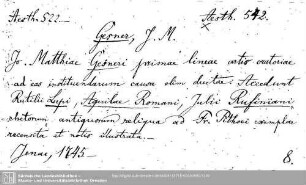 Aesth. 522.
Aesth. 542.
Gesner, J. M.
Jo. Matthiae Gesneri primae lineae artis oratoriae
ad eas instituendarum causa olim ductae. Accedunt
Rutilii Lupi, Aquilae Romani, Julii Rufiniani
rhetorum antiquorum reliqua ad Fr. Pithoei exemplar
recensita et notis illustrata.
Jenae, 1745
8.
Sächsische Landesbibliothek -
Staats- und Universitätsbibliothek Dresden